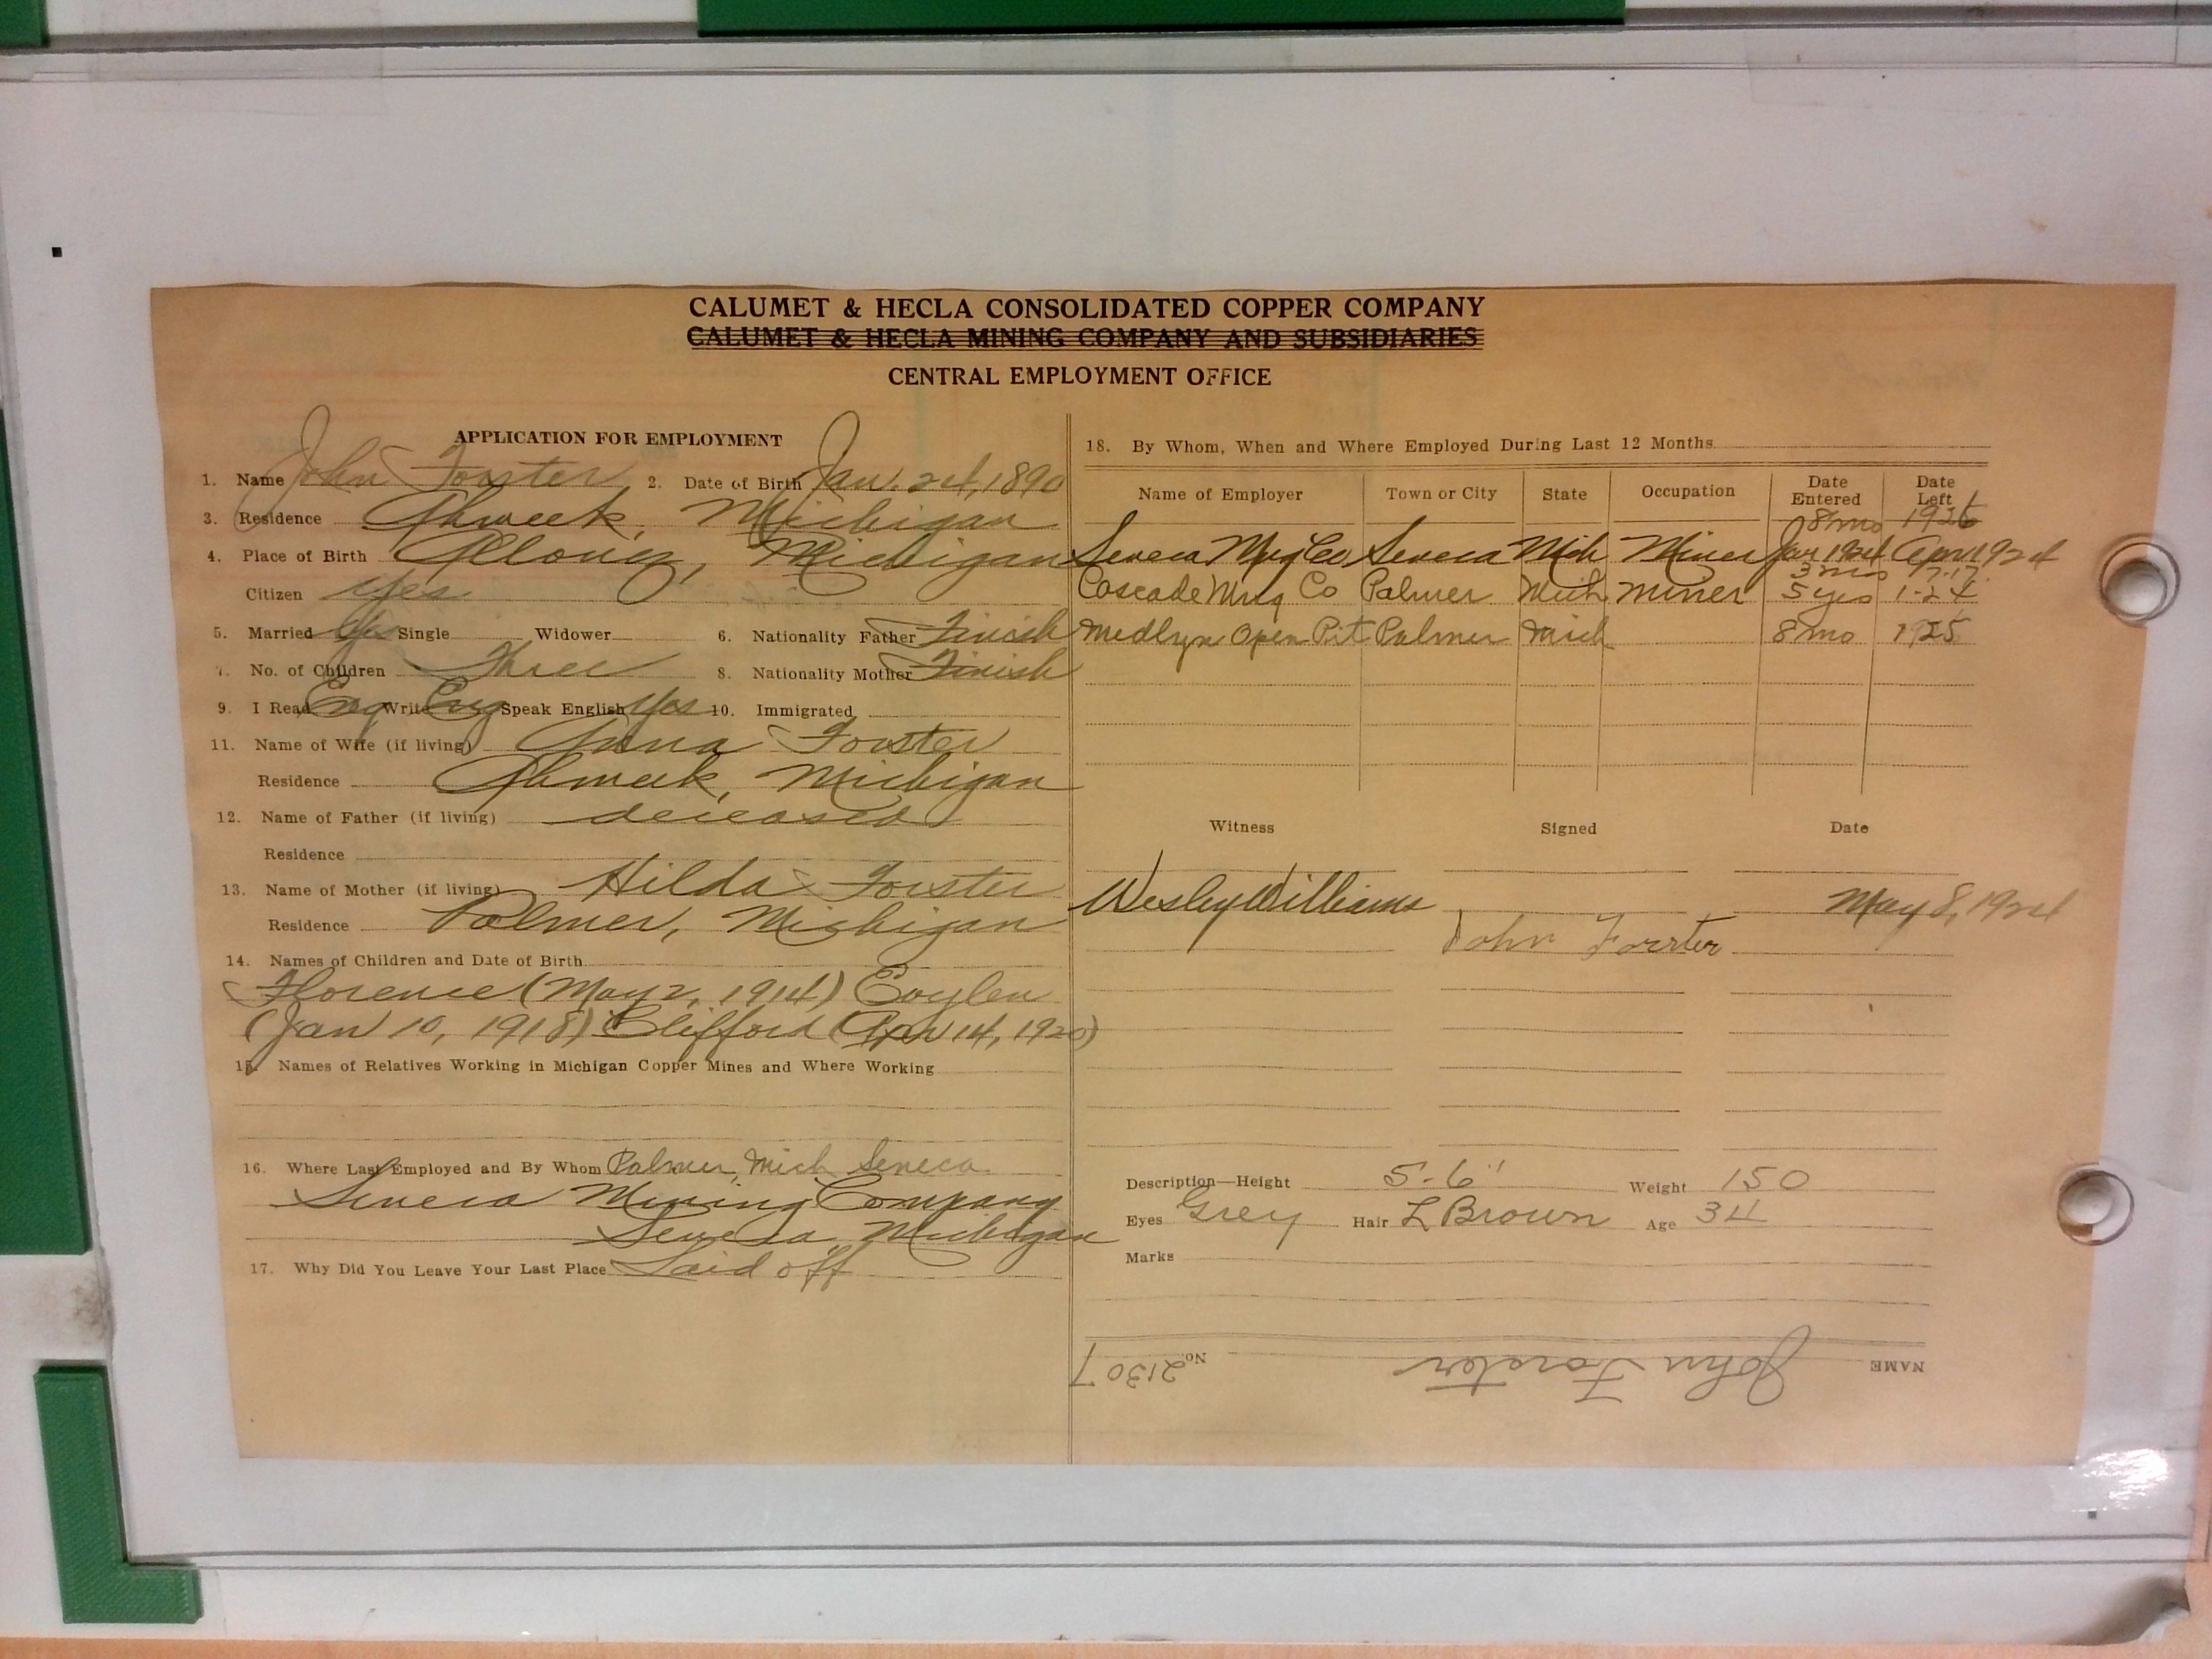 CALUMET & HECLA CONSOLIDATED COPPER COMPANY
CALUMET & HECLA MINING COMPANY AND SUBSIDIARIES
CENTRAL EMPLOYMENT OFFICE
APPLICATION FOR EMPLOYMENT
1. Name John Forster 2. Date of Birth Jan. 24, 1890
3. Residence Ahmeek, Michigan
4. Place of Birth Allouez, Michigan
Citizen Yes
5. Married Yes Single Widower 6. Nationality Father Finish
7. No. of Children Three 8. Nationality Mother Finish
9. I Read Eng Write Eng Speak English Yes 10. Immigrated
11. Name of Wife (if living) Anna Forster
Residence Ahmeek, Michigan
12. Name of Father (if living) deceased
Residence
13. Name of Mother (if living) Hilda Forster
Residence Palmer, Michigan
14. Names of Children and Date of Birth
Florence (May 2, 1914)
(Jan 10, 1918) Clifford (Apr 14, 1920)
15. Names of Relatives Working in Michigan Copper Mines and Where Working
16. Where Last Employed and By Whom Palmer, Mich Seneca
Seneca Mining Company
Seneca, Michigan
17. Why Did You Leave Your Last Place Laid off
18. By Whom, When and Where Employed During Last 12 Months
Name of Employer Town or City State Occupation Date Entered Date Left
8 mo 1926
Seneca Mng Co Seneca Mich Miner Jan 1924 Apr 1924
3 mo
Cascade Mng Co Palmer Mich. Miner 5 yrs 1-24
Medlyn Open Pit Palmer Mich 8 mo 1925
Witness Signed Date
Wesley Williams May 8, 1924
John Forster
Description—Height 5-6" Weight 150
Eyes Grey Hair L Brown Age 34
Marks
NAME John Forster No. 21307